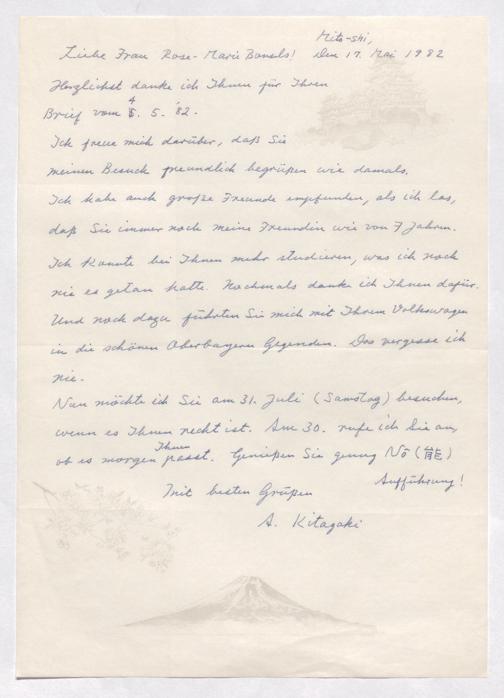 Mito-shi,
Liebe Frau Rose-Marie Bonsels! Den 17. Mai 1982
Herzlichst danke ich Ihnen für Ihren
Brief vom 4. 5. '82.
Ich freue mich darüber, daß Sie
meinen Besuch freundlich begrüßen wie damals.
Ich habe auch große Freunde empfunden, als ich las,
daß Sie immer noch meine Freundin wie von 7 Jahren.
Ich konnte bei Ihnen mehr studieren, was ich noch
nie es getan hatte. Nochmals danke ich Ihnen dafür.
Und noch dazu führten Sie mich mit Ihrem Volkswagen
in die schönen Oberbayern Gegenden. Das vergesse ich
nie.
Nun möchte ich Sie am 31. Juli (Samstag) besuchen,
wenn es Ihnen recht ist. Am 30. rufe ich Sie an,
ob es morgen Ihnen passt. Genießen Sie genug Nō (能)
Aufführung!
Mit besten Grüßen
A. Kitagaki